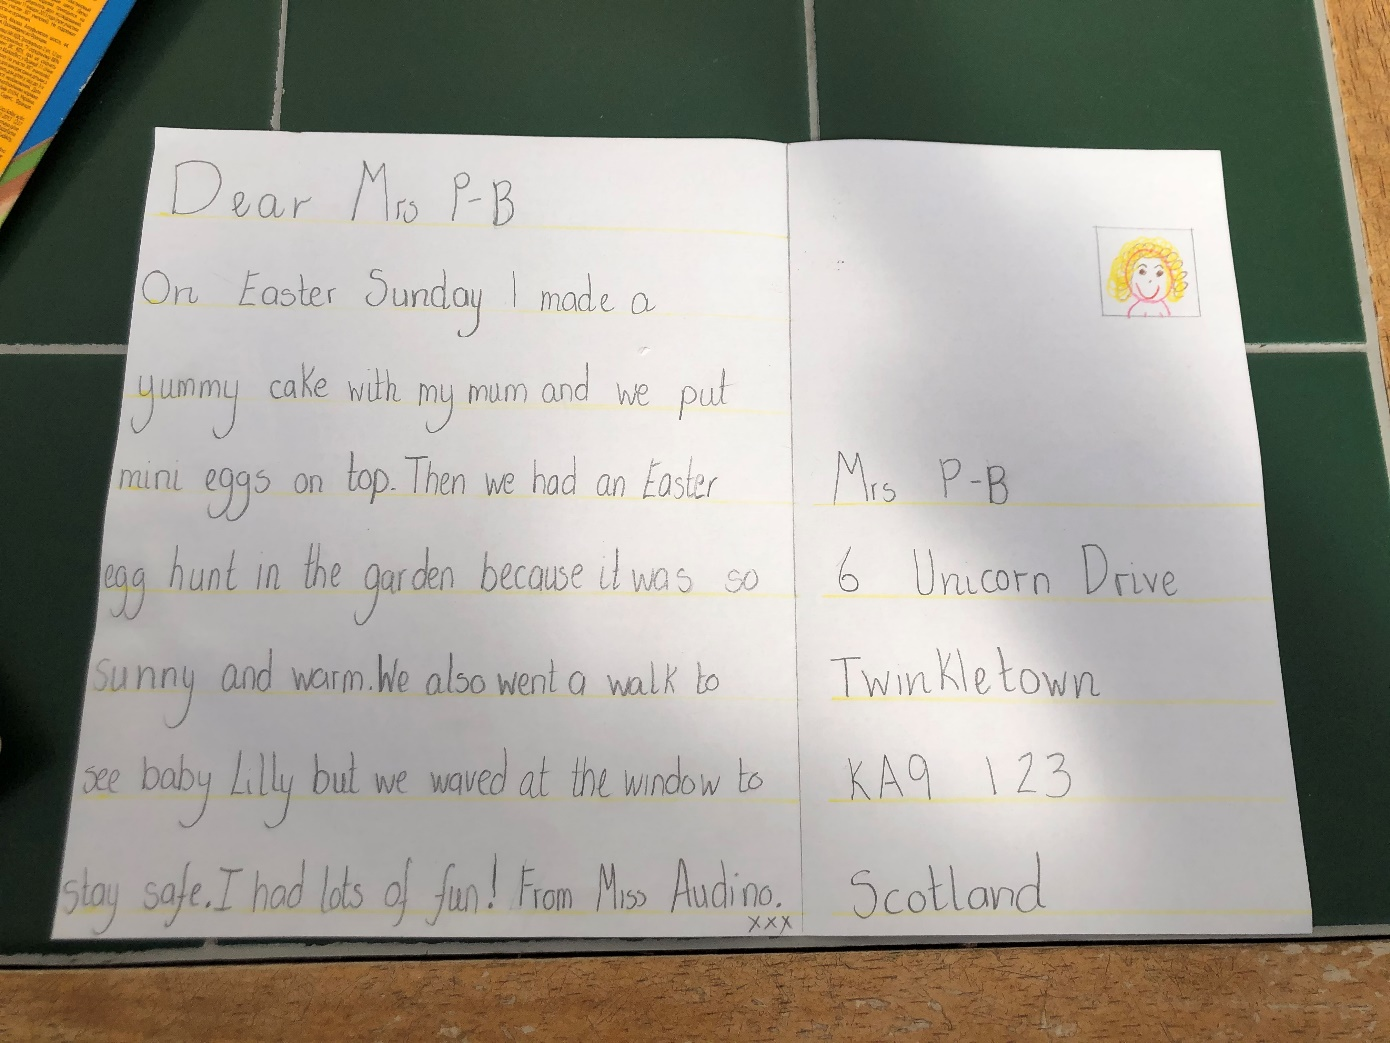 Dear Mrs P-B
On Easter Sunday I made a
yummy cake with my mum and we put
mini eggs on top. Then we had an Easter
egg hunt in the garden because it was so
sunny and warm. We also went a walk to
see baby Lilly but we waved at the window to
stay safe. I had lots of fun! From Miss Audino.
xxx
Mrs P-B
6 Unicorn Drive
Twinkletown
KA9 123
Scotland